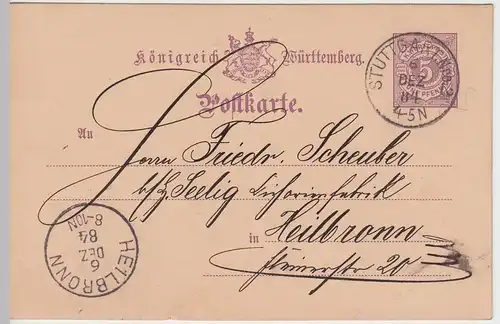 Königreich Württemberg.
Postkarte.
STUTTGART
6
DEZ
84
4-5N
5
An
Herrn Friedr. Scheuber
Seelig Cichorienfabrik
in Heilbronn
20
HEILBRONN
6
DEZ
84
8-10N